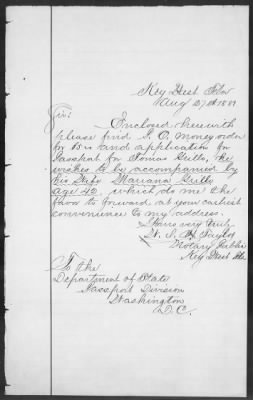 Key West Fla
Aug 27th 18
Sir:
Enclosed herewith
please find P. O. Money order
for $5 and application for
Passport for Tomas Grillo, he
wishes to be accompanied by
his Wife Mariana Grillo
age 42, which do me the
favor to forward, at your earliest
convenience to my address.
Yours very truly
W. S. H. Taylor
Notary Public
Key West Fla.
To the
Department of State
Passport Division
Washington
D.C.